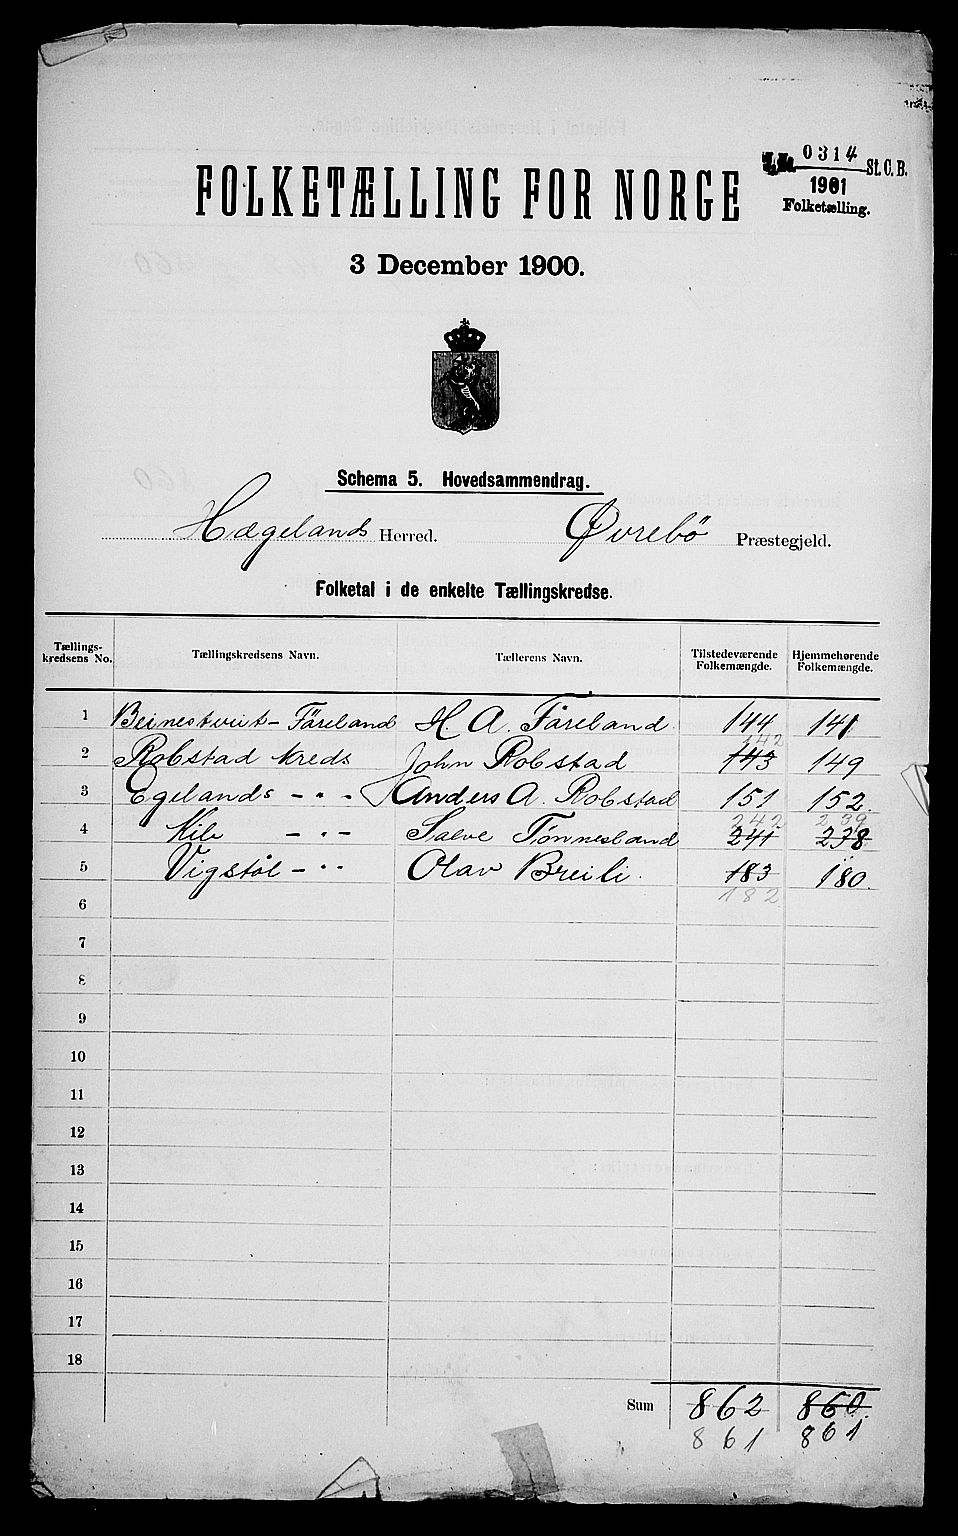 0314 St. C. B.
1901
Folketælling.
FOLKETÆLLING FOR NORGE
3 December 1900.
Schema 5. Hovedsammendrag.
Hægelands Herred. Øvrebö Præstegjeld.
Folketal i de enkelte Tællingskredse.
Tællings-kredsens No. Tællingskredsens Navn. Tællerens Navn. Tilstedeværende Folkemængde. Hjemmehørende Folkemængde.
1 Beinestveit - Fåreland H A. Fåreland. 144 141
142
2 Robstad Kreds John Robstad 143 149
3 Egelands - " - Anders A. Robstad 151 152.
242 239
4 Kile - " - Salve Tønnesland 241 238
5 Vigstöl - " - Olav Breili. 183 180.
182
6
7
8
9
10
11
12
13
14
15
16
17
18
Sum 862 860.
861 861